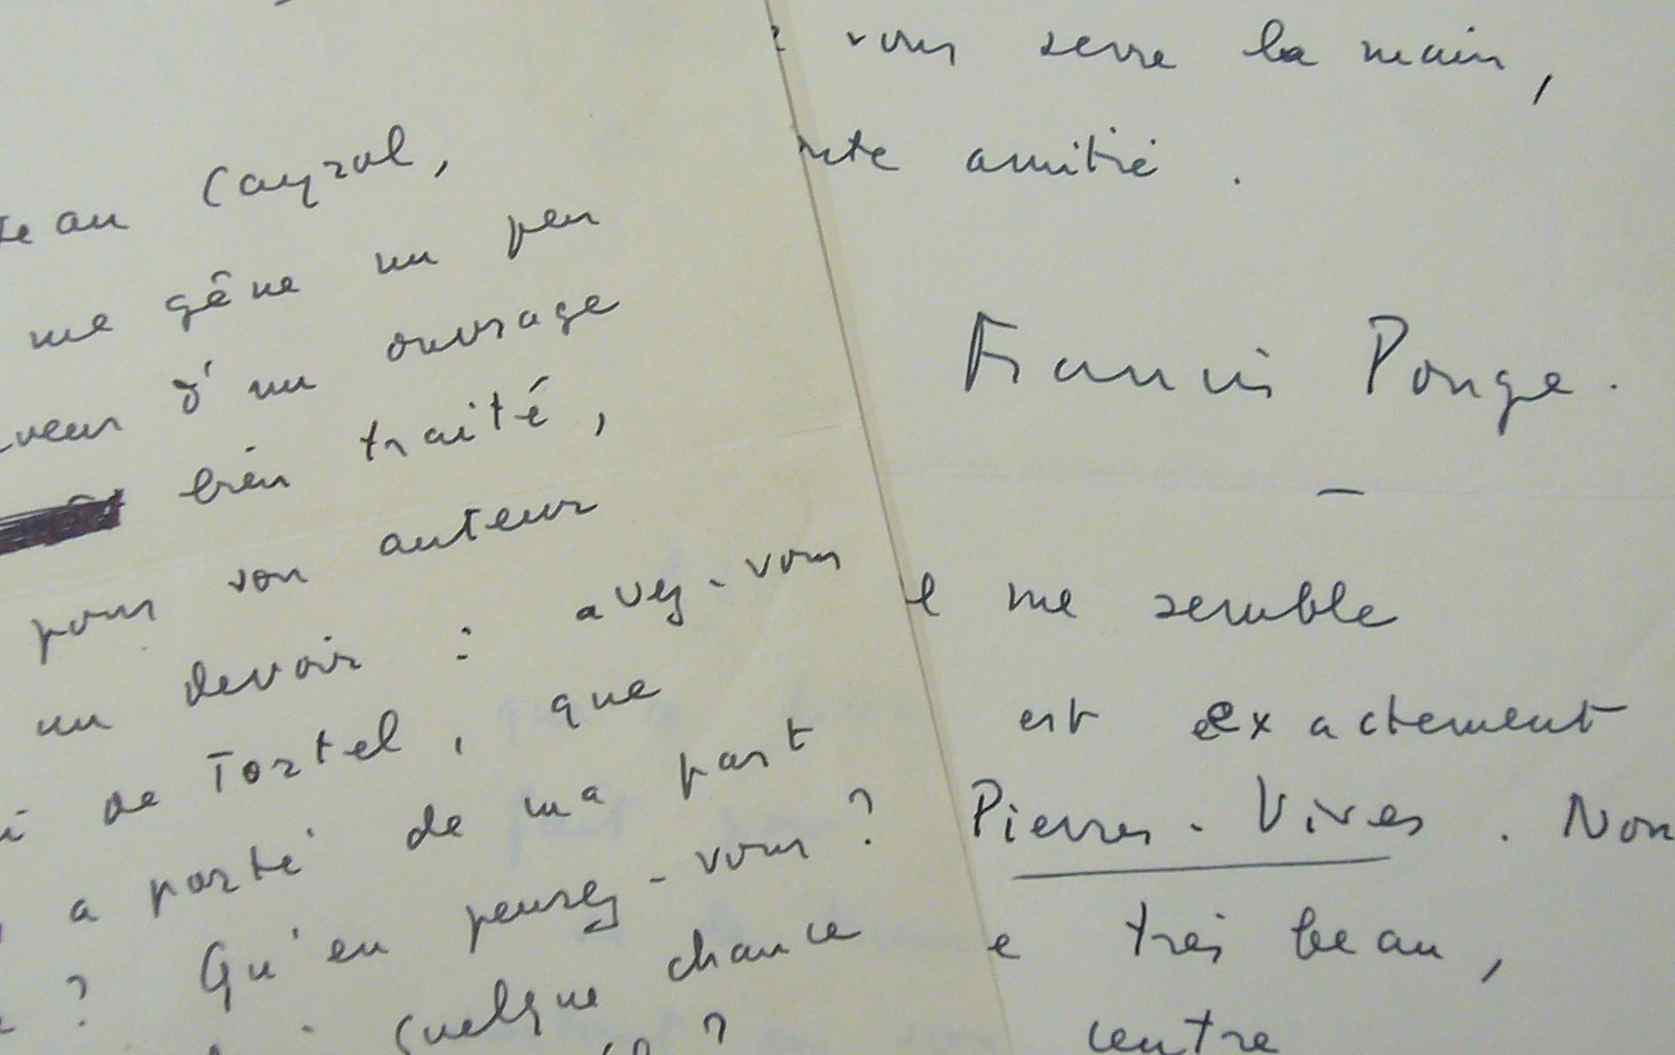 Jean Cayrol,
me gêne un peu
d'un ouvrage
bien traité,
pour son auteur
un devoir : avez-vous
de Tortel, que
a porté de ma part
? Qu'en pensez-vous ?
quelque chance
?
vous serre la main,
amitié.
Francis Ponge.
—
me semble
est exactement
Pierres-Vives. Non
e très beau,
centre